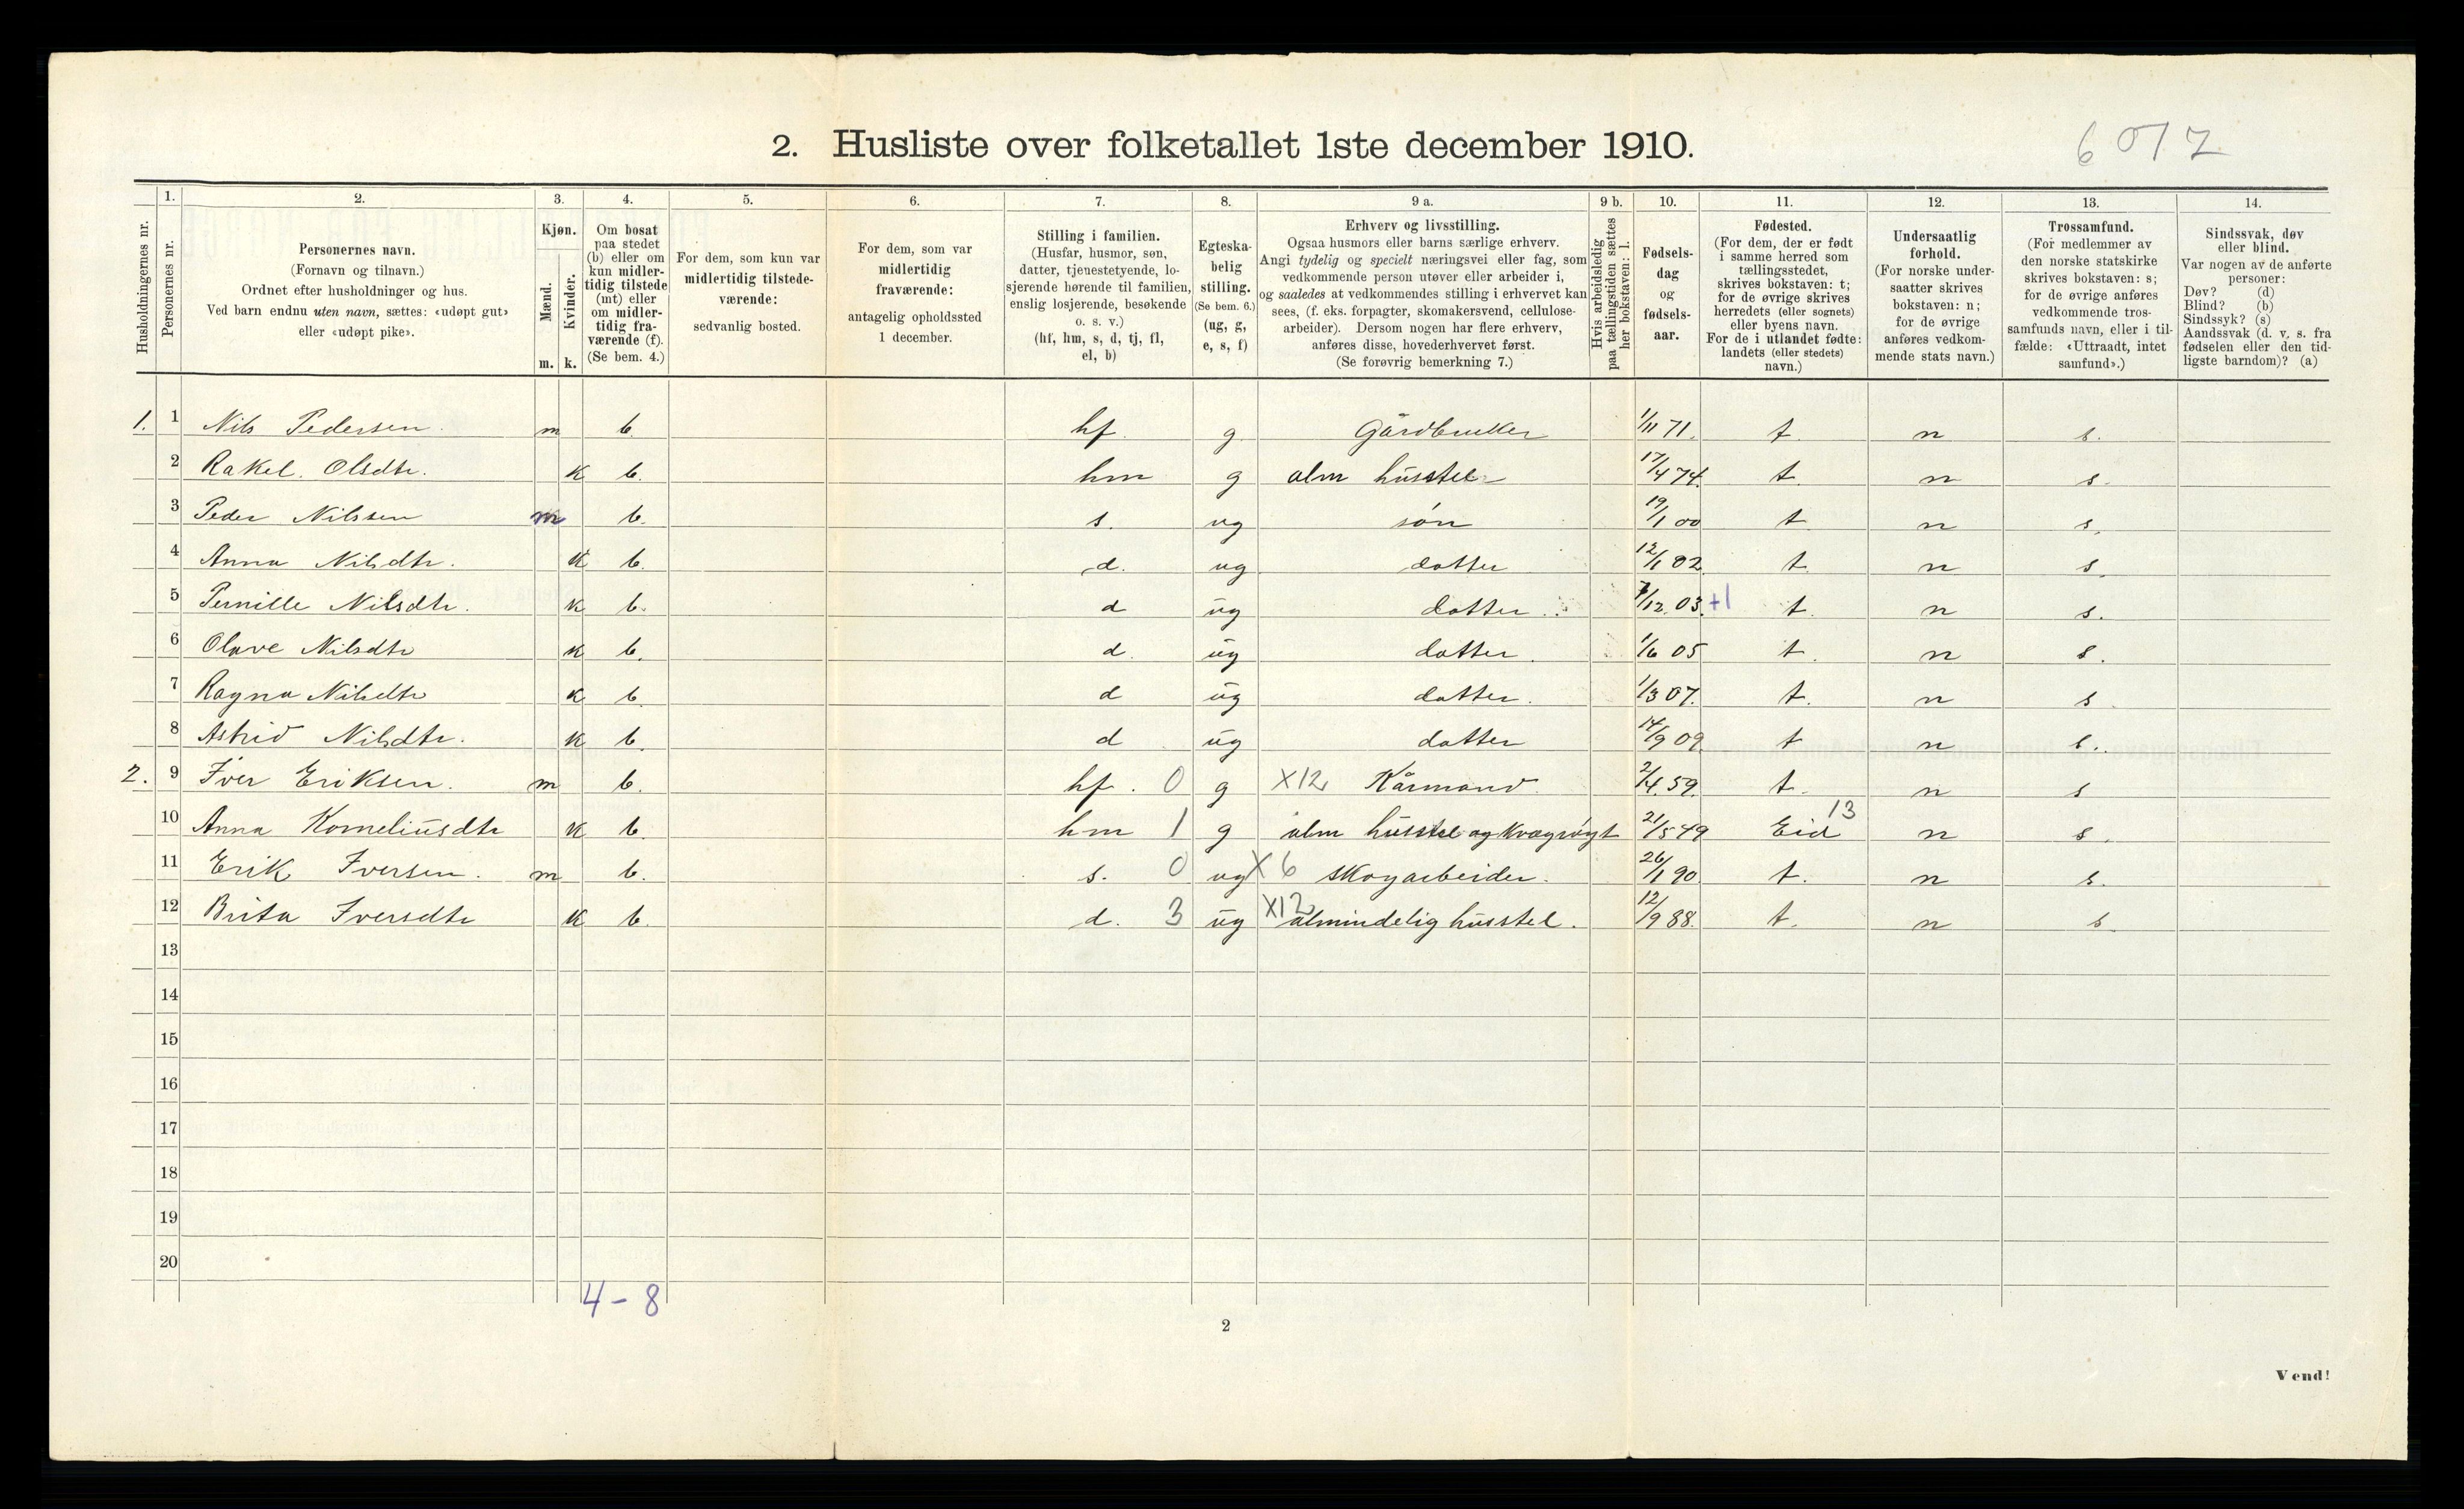 2. Husliste over folketallet 1ste december 1910.
6072
Husholdningernes nr.
1. Personernes nr.
2. Personernes navn. (Fornavn og tilnavn.) Ordnet efter husholdninger og hus. Ved barn endnu uten navn, sættes: «udøpt gut» eller «udøpt pike».
3. Kjøn. Mænd. m. Kvinder. k.
4. Om bosat paa stedet (b) eller om kun midlertidig tilstede (mt) eller om midlertidig fraværende (f). (Se bem. 4.)
5. For dem, som kun var midlertidig tilstedeværende: sedvanlig bosted.
6. For dem, som var midlertidig fraværende: antagelig opholdssted 1 december.
7. Stilling i familien. (Husfar, husmor, søn, datter, tjenestetyende, losjerende hørende til familien, enslig losjerende, besøkende o. s. v.) (hf, hm, s, d, tj, fl, el, b)
8. Egteskabelig stilling. (Se bem. 6.) (ug, g, e, s, f)
9 a. Erhverv og livsstilling. Ogsaa husmors eller barns særlige erhverv. Angi tydelig og specielt næringsvei eller fag, som vedkommende person utøver eller arbeider i, og saaledes at vedkommendes stilling i erhvervet kan sees, (f. eks. forpagter, skomakersvend, cellulosearbeider). Dersom nogen har flere erhverv, anføres disse, hovederhvervet først. (Se forøvrig bemerkning 7.)
9 b. Hvis arbeidsledig paa tællingstiden sættes her bokstaven: l.
10. Fødselsdag og fødselsaar.
11. Fødested. (For dem, der er født i samme herred som tællingsstedet, skrives bokstaven: t; for de øvrige skrives herredets (eller sognets) eller byens navn. For de i utlandet fødte: landets (eller stedets) navn.)
12. Undersaatlig forhold. (For norske undersaatter skrives bokstaven: n; for de øvrige anføres vedkommende stats navn.)
13. Trossamfund. (For medlemmer av den norske statskirke skrives bokstaven: s; for de øvrige anføres vedkommende trossamfunds navn, eller i tilfælde: «Uttraadt, intet samfund».)
14. Sindssvak, døv eller blind. Var nogen av de anførte personer: Døv? (d) Blind? (b) Sindssyk? (s) Aandssvak (d. v. s. fra fødselen eller den tidligste barndom)? (a)
1. 1 Nils Pedersen. m b. hf. g Gårdbruker 1/11 71. t. n s.
2 Rakel Olsdtr. k b. hm g alm husstel 17/4 74. t. n s.
3 Peder Nilssen m b. s. ug søn 19/1 00 t n s.
4 Anna Nilsdtr. k b. d. ug datter 12/1 02 t. n s.
5 Pernille Nilsdtr. k b. d ug datter 7/12. 03. +1 t. n s.
6 Olave Nilsdtr k b. d. ug datter. 1/6 05 t. n s.
7 Ragna Nilsdtr k b. d ug datter. 1/3 07. t. n s.
8 Astrid Nilsdtr. k b. d ug datter 14/9 09 t n s.
2. 9 Iver Eriksen. m b. hf. 0 g X12 Kårmand. 2/4. 59. t. n s
10 Anna Korneliusdtr k b. hm 1 g alm husstel og kvægrøgt 21/5 49 Eid 13 n s.
11 Erik Iversen. m b. s. 0 ug X 6 skogarbeider. 26/1 90. t. n s.
12 Brita Iversdtr k b. d. 3 ug X12 almindelig husstel. 12/9 88. t. n s.
13
14
15
16
17
18
19
20
4 - 8
2
Vend!